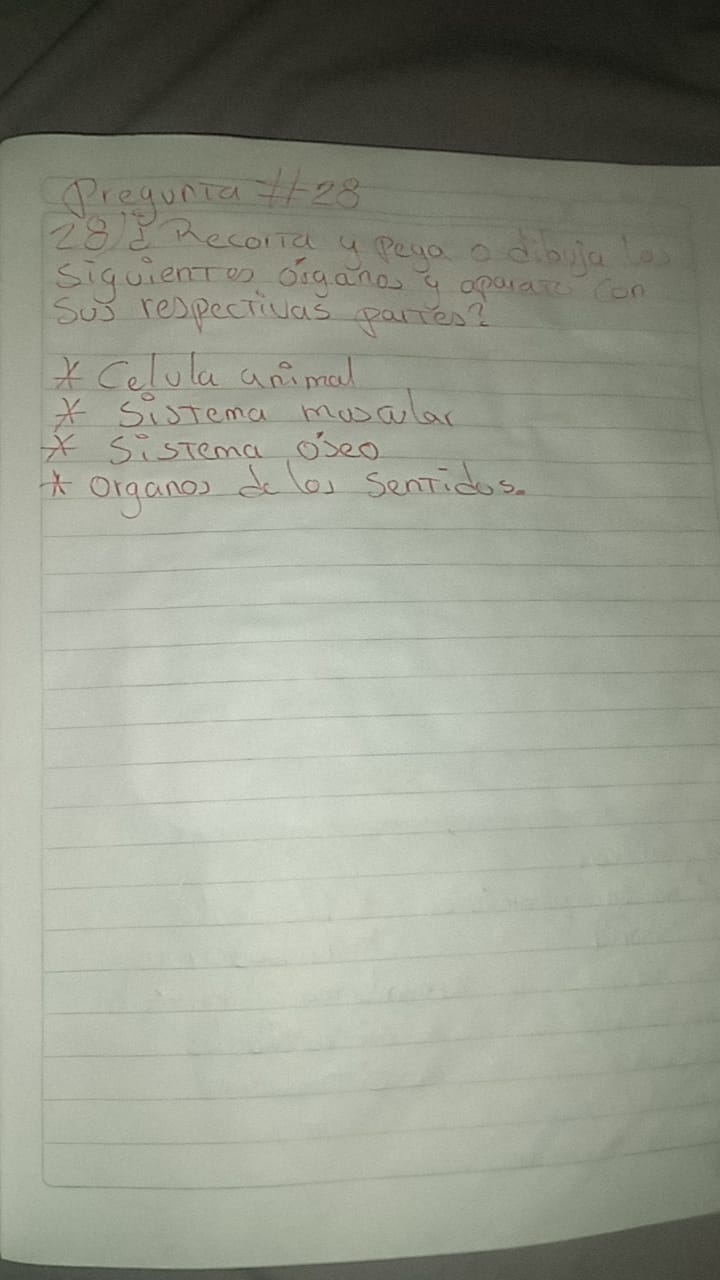 Pregunta #28
28) ¿ Recorta y pega o dibuja los
siguientes órganos y aparato con
sus respectivas partes?
* Celula animal
* Sistema muscular
* Sistema óseo
* Organos de los Sentidos.